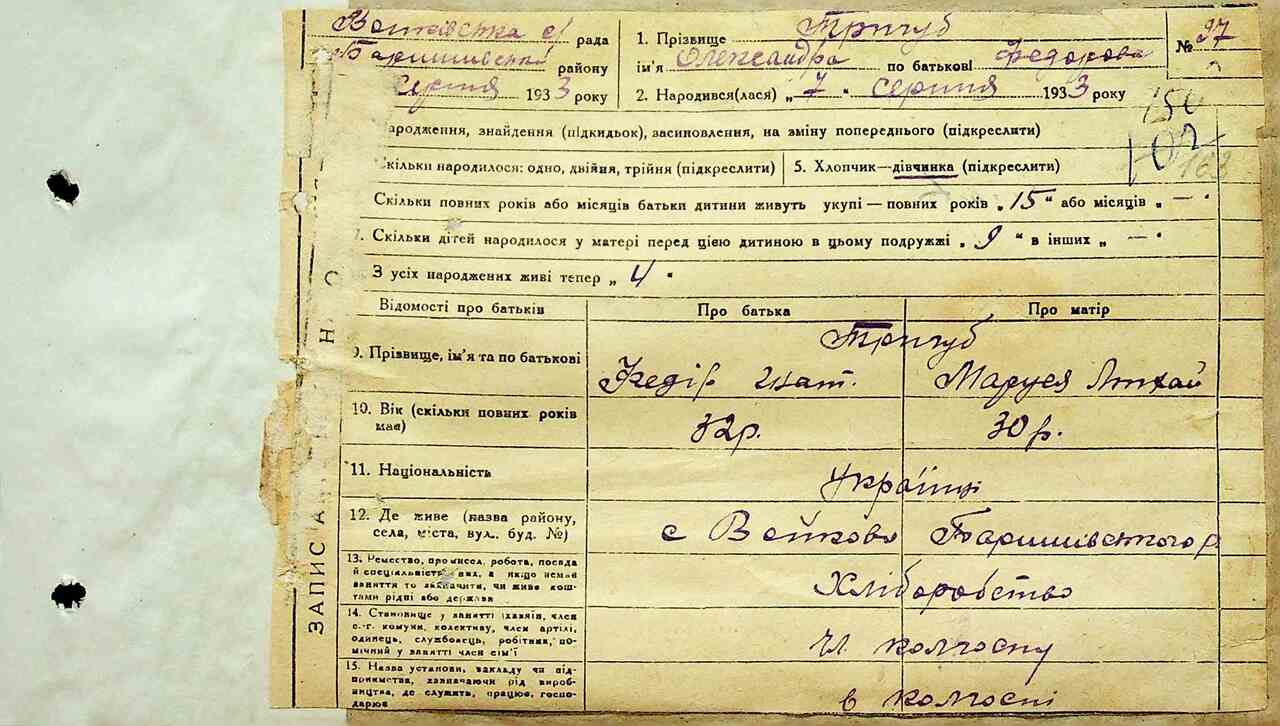 рада
1. Прізвище Тричуб
№ 37
району
ім'я Олександра по батькові Федорова
серпня 1933 року
2. Народився(лася) „ 7 “ серпня 1933 року
150
102
163
ародження, знайдення (підкидьок), засиновлення, на зміну попереднього (підкреслити)
кількі народилося: одно, двійня, трійня (підкреслити)
5. Хлопчик—дівчинка (підкреслити)
Скільки повних років або місяців батьки дитини живуть укупі — повних років „ 15 “ або місяців „ — “
Скільки дітей народилося у матері перед цією дитиною в цьому подружжі „ 9 “ в інших „ — “
З усіх народжених живі тепер „ 4 “
Відомості про батьків
Про батька
Про матір
9. Прізвище, ім'я та по батькові
Тричуб
Федір
Маруся
10. Вік (скільки повних років має)
32р.
30р.
11. Національність
Україці
12. Де живе (назва району, села, міста, вул. буд. №)
с Войкова Баришівського р
13. Ремество, промисел, робота, посада
й спеціальність вид, а якщо немає
заняття то зазначити, чи живе кош-
тами рідні або держава
Хліборобство
14. Становище у занятті (хазяїн, член
с.-г. комуни, колективу, член артілі,
одинець, службовець, робітник, по-
мічний у занятті член сім'ї
чл колгоспу
15. Назва установи, закладу чи під-
приємства, зазначаючи рід вироб-
ництва, де служить, працює, госпо-
дарює
в колгоспі
ЗАПИС